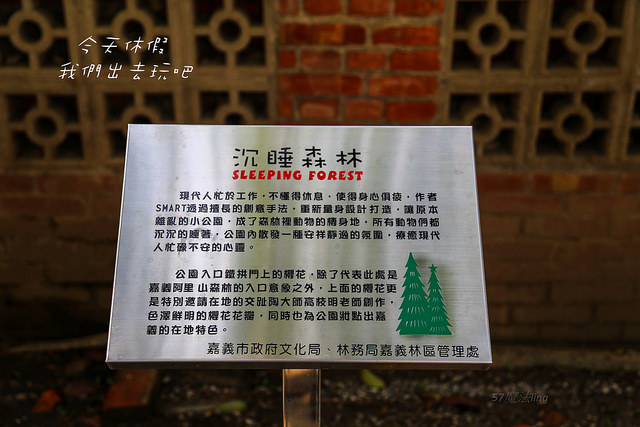 今天休假
我們出去玩吧
沉睡森林
SLEEPING FOREST
現代人忙於工作,不懂得休息,使得身心俱疲,作者
SMART透過擅長的創意手法,重新量身設計打造,讓原本
雜亂的小公園,成了森林裡動物的棲身地,所有動物們都
沉沉的睡著,公園內散發一種安祥靜謐的氛圍,療癒現代
人忙碌不安的心靈。
公園入口鐵拱門上的櫻花,除了代表此處是
嘉義阿里山森林的入口意象之外,上面的櫻花更
是特別邀請在地的交趾陶大師高枝明老師創作,
色澤鮮明的櫻花花瓣,同時也為公園妝點出嘉
義的在地特色。
嘉義市政府文化局、林務局嘉義林區管理處
57魔法ling